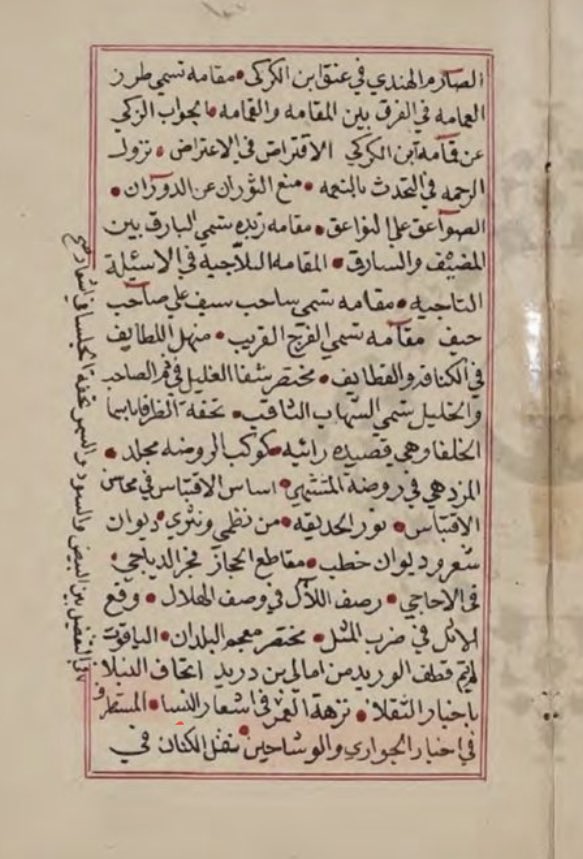 الصارم الهندي في عنق ابن الكركى • مقامه تسمى طرز
العمامه في الفرق بين المقامه والقمامه • الجواب الزكي
عن قمامة ابن الكركي الاقتراض في الاعتراض • نزول
الرحمه في التحدث بالنعمه • منع الثوران عن الدوران •
الصواعق على النواعق • مقامه تسمى البارق بين
المضيف والسارق • المقامه اللاجيه في الاسئلة
التاجيه • مقامه تسمى ساحب سيف على صاحب
حيف مقامه تسمى الفرج القريب • منهل اللطايف
في الكنافه والقطايف • مختصر شفا الغليل في ذم الصاحب
والخليل تسمى الشهاب الثاقب • تحفة الظرفا باسما
الخلفا وهي قصيده رائيه • كوكب الروضه مجلد •
المزدهي في روضة المشتهى • اساس الاقتباس في محاسن
الاقتباس • نور الحديقه • من نظمي ونثري • ديوان
شعر وديوان خطب • مقاطع الحجاز فجر الدياجي •
في الاحاجي • رصف اللآل في وصف الهلال • وقع
الاسل في ضرب المثل • مختصر معجم البلدان • الياقوت
قطف الوريد من امالي بن دريد اتحاف النبلا
باخبار الثقلا • نزهة العمر في اشعار النسا • المستظرف
في اخبار الجواري والوشاحين • نثل الكنان في
في التفضيل بين البيض والسود والسمر تحفة الجلسا في اشعار صح